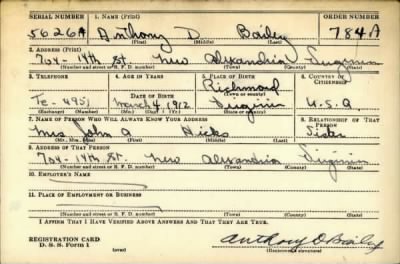 SERIAL NUMBER 1. NAME (Print) ORDER NUMBER
5626A Anthony D Bailey 784A
(First) (Middle) (Last)
2. ADDRESS (Print)
704-14th St. New Alexandria Virginia
(Number and street or R. F. D. number) (Town) (County) (State)
3. TELEPHONE 4. AGE IN YEARS 5. PLACE OF BIRTH 6. COUNTRY OF CITIZENSHIP
Richmond
(Town or county)
DATE OF BIRTH
Te-4951 March 4 1912 Virginia U.S.A
(Exchange) (Number) (Mo.) (Day) (Yr.) (State or country)
7. NAME OF PERSON WHO WILL ALWAYS KNOW YOUR ADDRESS 8. RELATIONSHIP OF THAT PERSON
Mrs John A Hicks Sister
(Mr., Mrs., Miss) (First) (Middle) (Last)
9. ADDRESS OF THAT PERSON
704-14th St. New Alexandria Virginia
(Number and street or R. F. D. number) (Town) (County) (State)
10. EMPLOYER'S NAME
11. PLACE OF EMPLOYMENT OR BUSINESS
(Number and street or R. F. D. number) (Town) (County) (State)
I AFFIRM THAT I HAVE VERIFIED ABOVE ANSWERS AND THAT THEY ARE TRUE.
REGISTRATION CARD
D. S. S. Form 1 (over) Anthony D Bailey
(Registrant's signature)